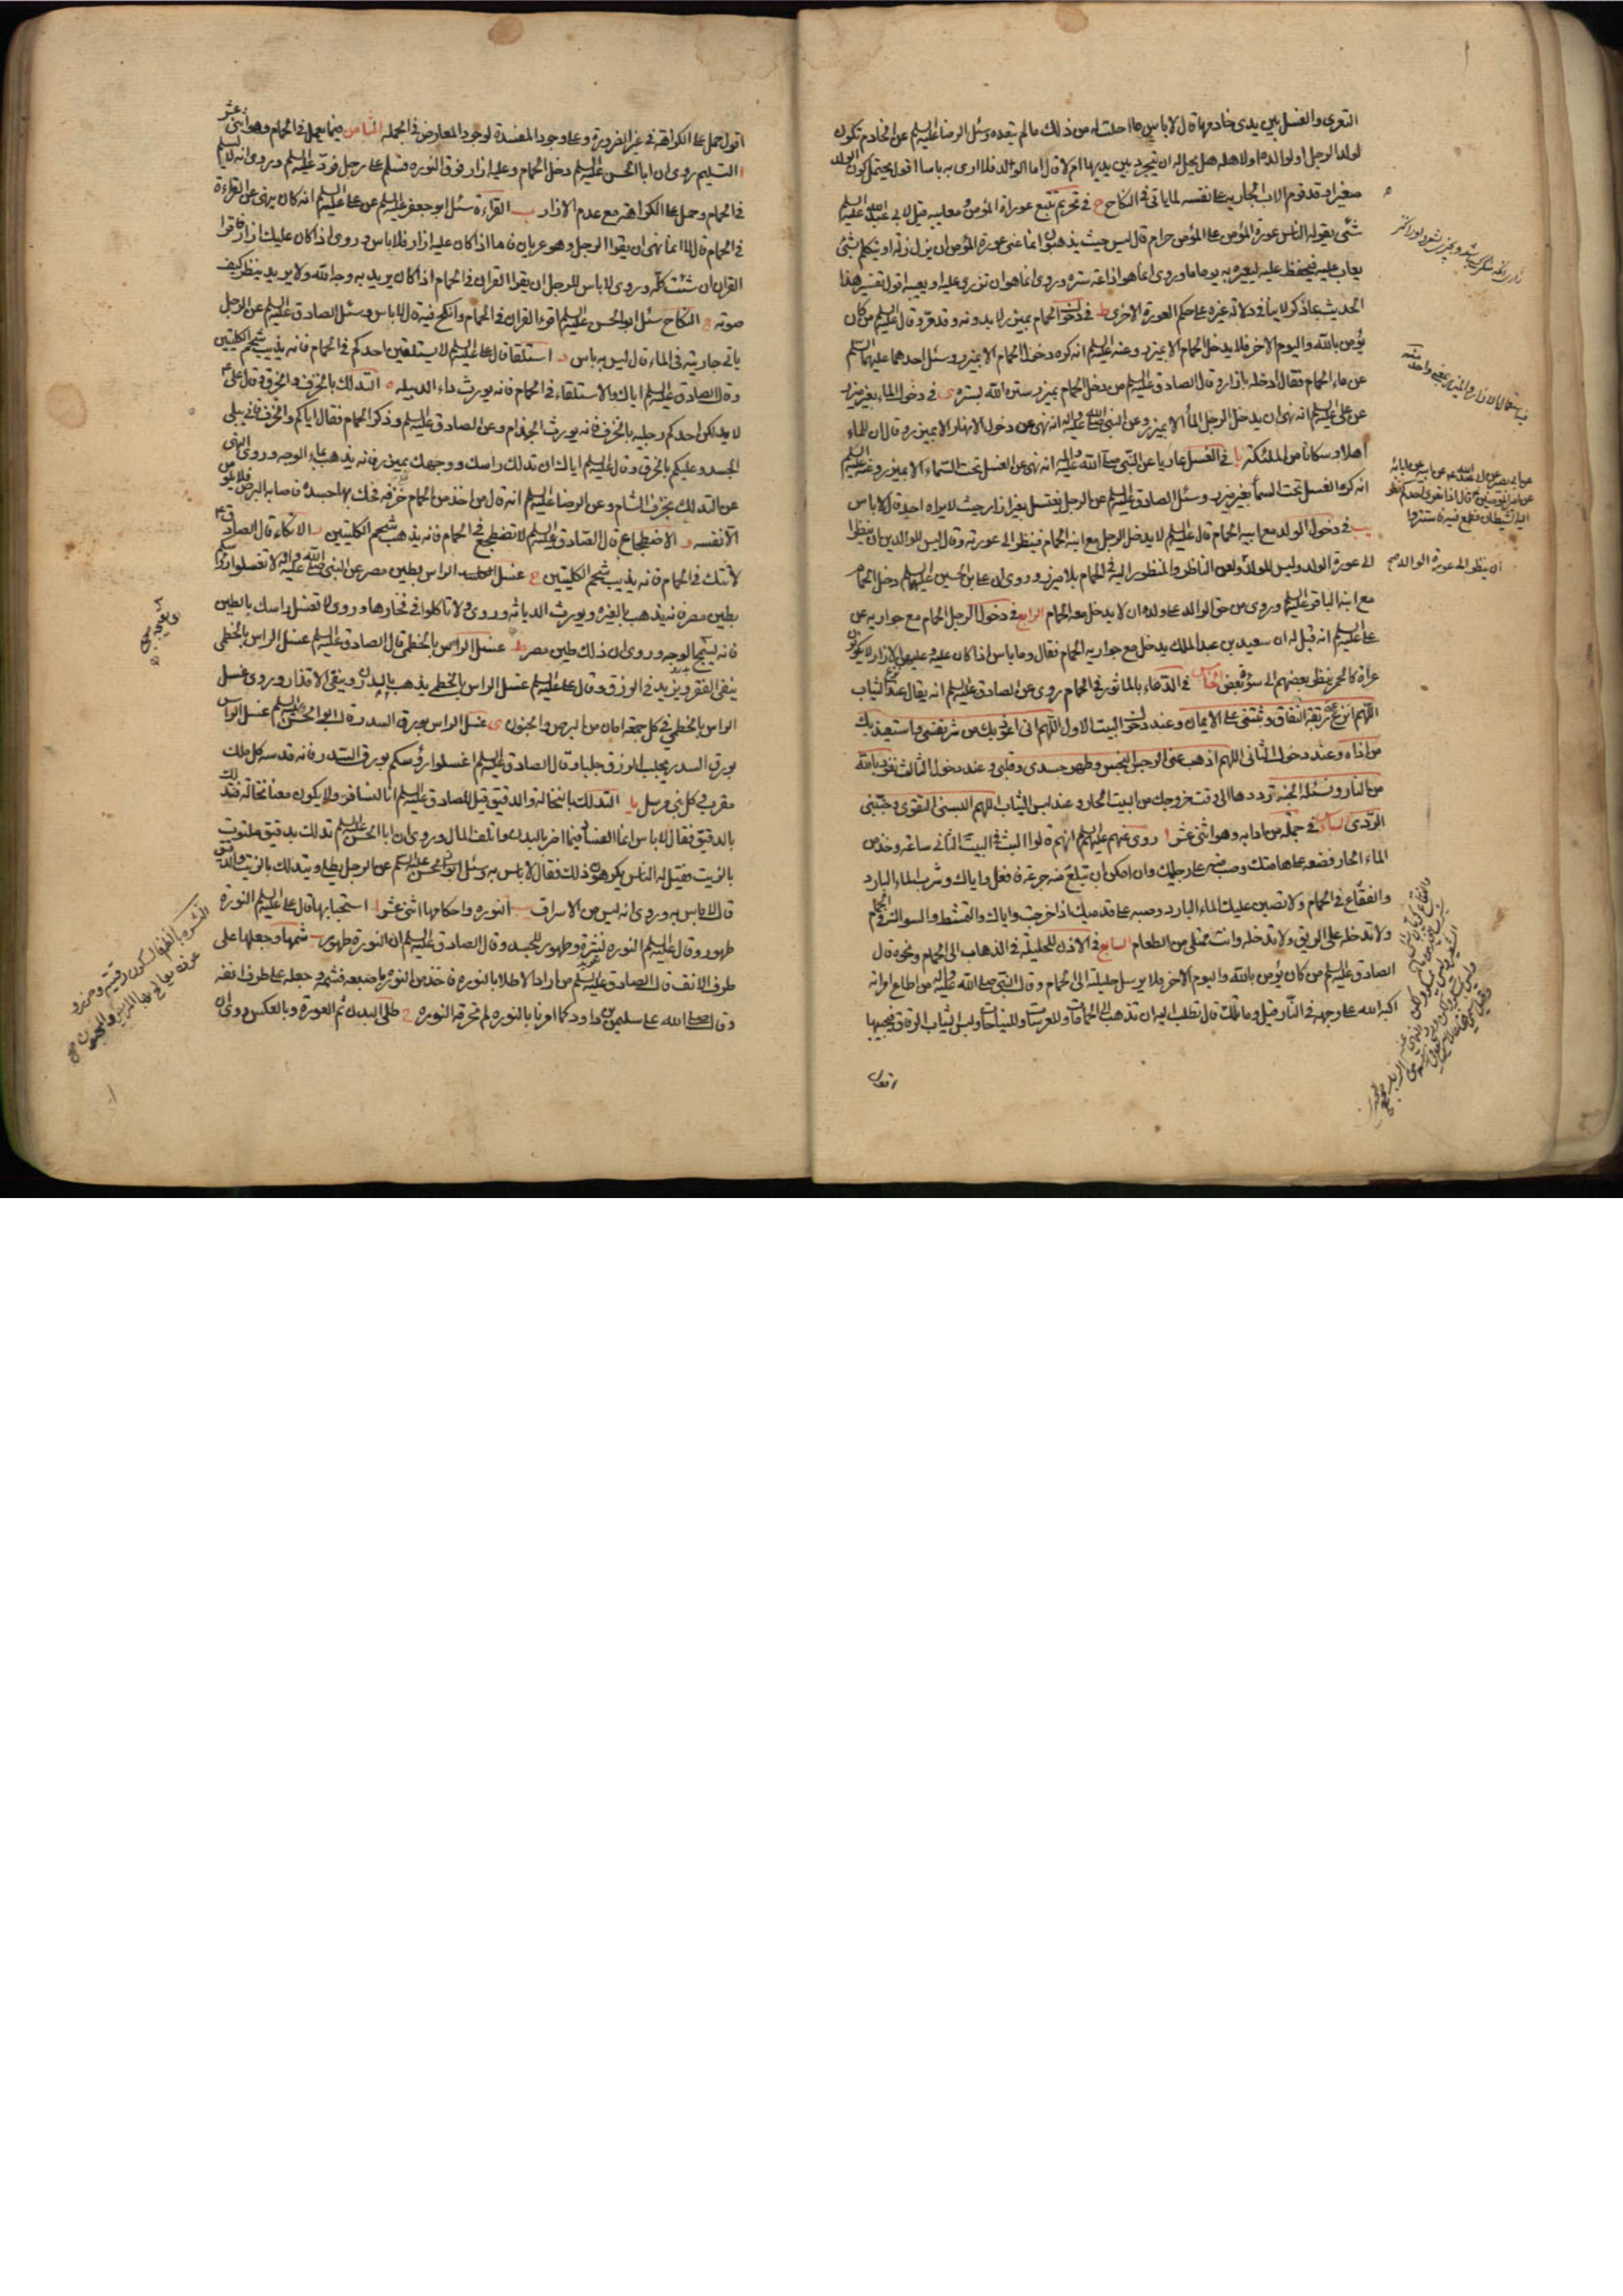 التعرى والغسل بين يدى خادمها قال لاباس ما احلت له من ذلك ما لم يتعده وسئل الرضا عليه السلم عن الخادم تكون
لولد الرجل او لوالده او لاهله هل يحل له ان يتجرد بين يديها ام لا قال اما الولد فلا ارى به باسا اقول يحتمل كون الولد
صغيرا وقد قوم الاب الجارية على نفسه لما ياتى فى النكاح ح فى تحريم تتبع عورات المؤمن ومعايبه قيل لابى عبد الله عليه السلم
شئ يقوله الناس عورة المؤمن على المؤمن حرام قال ليس حيث يذهبون انما عنى عورة المؤمن ان يزل زلة او يتكلم بشئ
يعاب عليه فيحفظ عليه ليعيره به يوما ما وروى انما هو اذاعة سره وروى انما هو ان تزرى عليه او تعيبه اقول تفسير هذا
الحديث بما ذكر لا ينافى دلالة غيره على حكم العورة الاخرى ط فى دخول الحمام بميزر لا بدونه وقد مر وقال عليه السلم من كان
يؤمن بالله واليوم الاخر فلا يدخل الحمام الا بميزر وعنه عليه السلم انه كره دخول الحمام الا بميزر وسئل احدهما عليهما السلم
عن ماء الحمام فقال ادخله بازار وقال الصادق عليه السلم من دخل الحمام بميزر ستره الله بستره ى فى دخول الماء بغير ميزر
عن على عليه السلم انه نهى ان يدخل الرجل الماء الا بميزر وعن النبى صلى الله عليه واله انه نهى عن دخول الانهار الا بميزر وقال ان للماء
اهلا وسكانا من الملئكة يا فى الغسل عاريا عن النبى صلى الله عليه واله انه نهى عن الغسل تحت السماء الا بميزر وعنه عليه السلم
انه كره الغسل تحت السماء بغير ميزر وسئل الصادق عليه السلم عن الرجل يغتسل بغير ازار حيث لا يراه احد قال لا باس
يب فى دخول الولد مع ابيه الحمام قال عليه السلم لا يدخل الرجل مع ابنه الحمام فينظر الى عورته وقال ليس للوالدين ان ينظرا
الى عورة الولد وليس للولد ولعن الناظر والمنظور اليه فى الحمام بلا ميزر وروى ان على بن الحسين عليهما السلم دخل الحمام
ان ينظر الى عورة الوالد صح
مع ابنه الباقر عليه السلم وروى من حق الوالد على ولده ان لا يدخل معه الحمام الرابع فى دخول الرجل الحمام مع جواريه عن
على عليه السلم انه قيل له ان سعيد بن عبد الملك يدخل مع جواريه الحمام فقال وما باس اذا كان عليه وعليهن الازار لا يكونون
عراة كالحمر ينظر بعضهم الى سوءة بعض الخامس فى الدعاء بالماثور فى الحمام روى عن الصادق عليه السلم انه يقال عند نزع الثياب
اللهم انزع عنى ربقة النفاق وثبتنى على الايمان وعند دخول البيت الاول اللهم انى اعوذ بك من شر نفسى واستعيذ بك
من اذاه وعند دخول الثانى اللهم اذهب عنى الرجس النجس وطهر جسدى وقلبى وعند دخول الثالث نعوذ بالله
من النار ونسئله الجنة ترددها الى وقت خروجك من البيت الحار وعند لبس الثياب اللهم البسنى التقوى وجنبنى
الردى السادس فى جملة من ادابه وهو اثنى عشر ا روى عنهم عليهم السلم انهم قالوا البث فى البيت الثانى ساعة وخذ من
الماء الحار فضعه على هامتك وصب منه على رجليك وان امكن ان تبلع منه جرعة فافعل واياك وشرب الماء البارد
والفقاع فى الحمام ولا تصبن عليك الماء البارد وصبه على قدميك اذا خرجت واياك والتمشط والسواك فى الحمام
ولا تدخله على الريق ولا تدخله وانت ممتلى من الطعام السابع فى الاذن للحليلة فى الذهاب الى الحمام ونحوه قال
الصادق عليه السلم من كان يؤمن بالله واليوم الاخر فلا يرسل حليلته الى الحمام وقال النبى صلى الله عليه واله من اطاع امراته
اكبه الله على وجهه فى النار قيل وما تلك قال تطلب اليه ان تذهب الى الحمامات والعرسات والنياحات ولبس الثياب الرقاق فيجيبها
اقول
اقول حمل على الكراهة فى غير الضرورة وعلى وجود المفسدة لوجود المعارض فى الجملة الثامن فيما يعمل فى الحمام وهو اثنى عشر
ا التسليم روى ان ابا الحسن عليه السلم دخل الحمام وعليه ازار فوق النورة فسلم على رجل فرد عليه السلم وروى انه لا يسلم
فى الحمام وحمل على الكراهة مع عدم الازار ب القراءة سئل ابو جعفر عليه السلم عن على عليه السلم انه كان ينهى عن القراءة
فى الحمام قال لا انما نهى ان يقرا الرجل وهو عريان فاما اذا كان عليه ازار فلا باس وروى اذا كان عليك ازار فاقرا
القران ان شئت كله وروى لا باس للرجل ان يقرا القران فى الحمام اذا كان يريد به وجه الله ولا يريد ينظر كيف
صوته ج النكاح سئل ابو الحسن عليه السلم اقرء القران فى الحمام وانكح فيه قال لا باس وسئل الصادق عليه السلم عن الرجل
ياتى جاريته فى الماء قال ليس به باس د استلقا قال على عليه السلم لا يستلقين احدكم فى الحمام فانه يذيب شحم الكليتين
وقال الصادق عليه السلم اياك والاستلقاء فى الحمام فانه يورث داء الدبيلة ه التدلك بالخزف والخرق قال على ع
لا يدلكن احدكم رجليه بالخزف فانه يورث الجذام وعن الصادق عليه السلم وذكر الحمام فقال اياكم والخزف فانه يبلى
الجسد وعليكم بالخرق وقال عليه السلم اياك ان تدلك راسك ووجهك بميزر فانه يذهب بماء الوجه وروى النهى
عن التدلك بخزف الشام وعن الرضا عليه السلم انه قال من اخذ من الحمام خزفة فحك بها جسده فاصابه البرص فلا يلومن
الا نفسه و الاضطجاع قال الصادق عليه السلم لا تضطجع فى الحمام فانه يذهب شحم الكليتين ز الاتكاء قال الصادق ع
لا تتك فى الحمام فانه يذيب شحم الكليتين ح غسل الراس بطين مصر عن النبى صلى الله عليه واله لا تغسلوا رؤسكم
بطين مصر فانه يذهب بالغيرة ويورث الدياثة وروى ولا تاكلوا فى فخارها وروى لا تغسل راسك بالطين
فانه يسمج الوجه وروى ان ذلك طين مصر ط غسل الراس بالخطمى قال الصادق عليه السلم غسل الراس بالخطمى
ينفى الفقر ويزيد فى الرزق وقال على عليه السلم غسل الراس بالخطمى يذهب بالدرن وينقى الاقذار وروى غسل
الراس بالخطمى فى كل جمعة امان من البرص والجنون ى غسل الراس بورق السدر قال ابو الحسن عليه السلم غسل الراس
بورق السدر يجلب الرزق جلبا وقال الصادق عليه السلم اغسلوا رؤسكم بورق السدر فانه قدسه كل ملك
مقرب وكل نبى مرسل يا التدلك بالنخالة والدقيق قيل للصادق عليه السلم انا لنسافر ولا يكون معنا نخالة فنتدلك
بالدقيق فقال لا باس انما الفساد فيما اضر بالبدن واتلف المال وروى ان ابا الحسن عليه السلم تدلك بدقيق ملتوت
بالزيت فقيل له الناس يكرهون ذلك فقال لا باس به وسئل ابو الحسن عليه السلم عن الرجل يطلى ويتدلك بالزيت والدقيق
قال لا باس به وروى انه ليس من الاسراف يب النورة واحكامها اثنى عشر ا استحبابها قال على عليه السلم النورة
طهور وقال عليه السلم النورة نشرة وطهور للجسد وقال الصادق عليه السلم ان النورة طهور ب شمها وجعلها على
طرف الانف قال الصادق عليه السلم من اراد الاطلا بالنورة فاخذ من النورة باصبعه فشمه وجعله على طرف انفه
وقال صلى الله على سليمن بن داود كما امرنا بالنورة لم تحرقه النورة ج طلى البدن ثم العورة وبالعكس روى ان